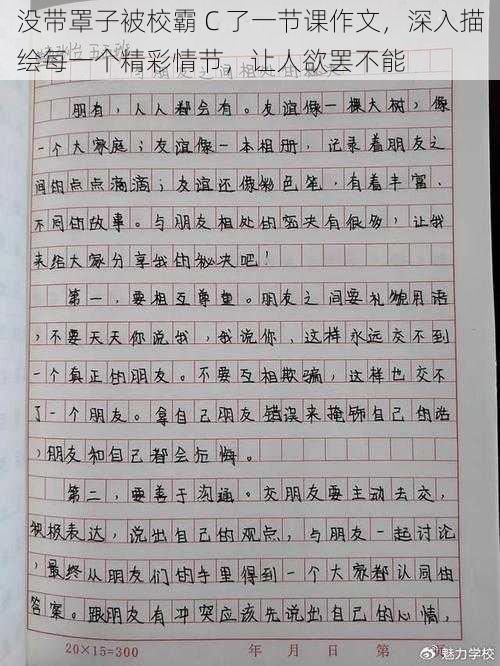 没带罩子被校霸 C 了一节课作文，深入描
绘每一个精彩情节，让人欲罢不能
朋有，人人都会有。友谊像一棵大树；像
一个大家庭；友谊像一本相册，记录着朋友之
间的点点滴滴；友谊还像彩色笔，有着丰富、
不同的故事。与朋友相处的窍夬有很多，让我
来给大家分享我的秘夬吧！
第一，要相互尊重。朋友之间要礼貌用语
，不要天天你说我，我说你，这样永远交不到
一个真正的朋友。不要互相欺骗，这样也交不
了一个朋友。拿自己朋友错误来掩饰自己的话
，朋友和自己都会后悔。
第二，要善于沟通。交朋友要主动去交，
积极表达，说出自己的观点，与朋友一起讨论
，最终从朋友们的手里得到一个大家都认同的
答案。跟朋友有冲突应该先说出自己的心情，
20×15=300 年 月 日 第
魅力学校